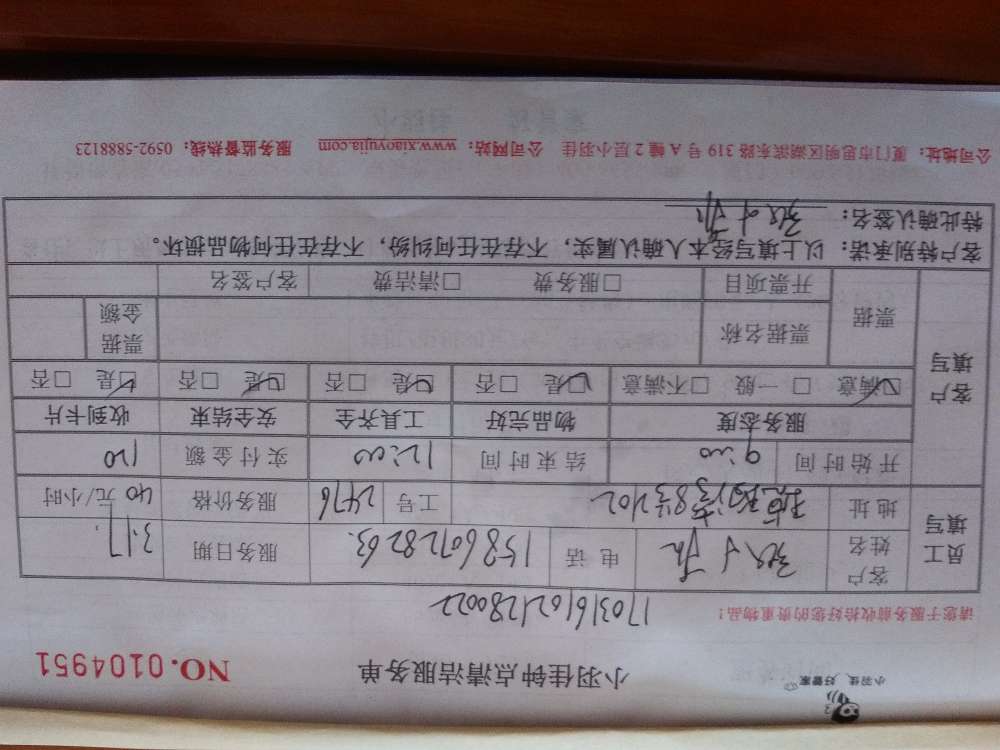 小羽佳 好管家
小羽佳钟点清洁服务单 NO.0104951
1703161021280022
请您于服务前收拾好您的贵重物品！
员工填写 客户姓名 电话 15860728263. 服务日期 3.17.
地址 8号202 工号 2476 服务价格 40元/小时
开始时间 9:00 结束时间 12:00 实付金额 120
客户填写 服务态度 物品完好 工具齐全 安全结束 收到卡片
☑满意 □一般 □不满意 ☑是 □否 ☑是 □否 ☑是 □否 ☑是 □否
票据 票据名称 票据金额
开票项目 □服务费 □清洁费 客户签名
客户特别承诺：以上填写经本人确认属实，不存在任何纠纷，不存在任何物品损坏。
特此确认签名：
公司地址：厦门市思明区湖滨东路319号A幢2层小羽佳 公司网站：www.xiaoyujia.com 服务监督热线：0592-5888123